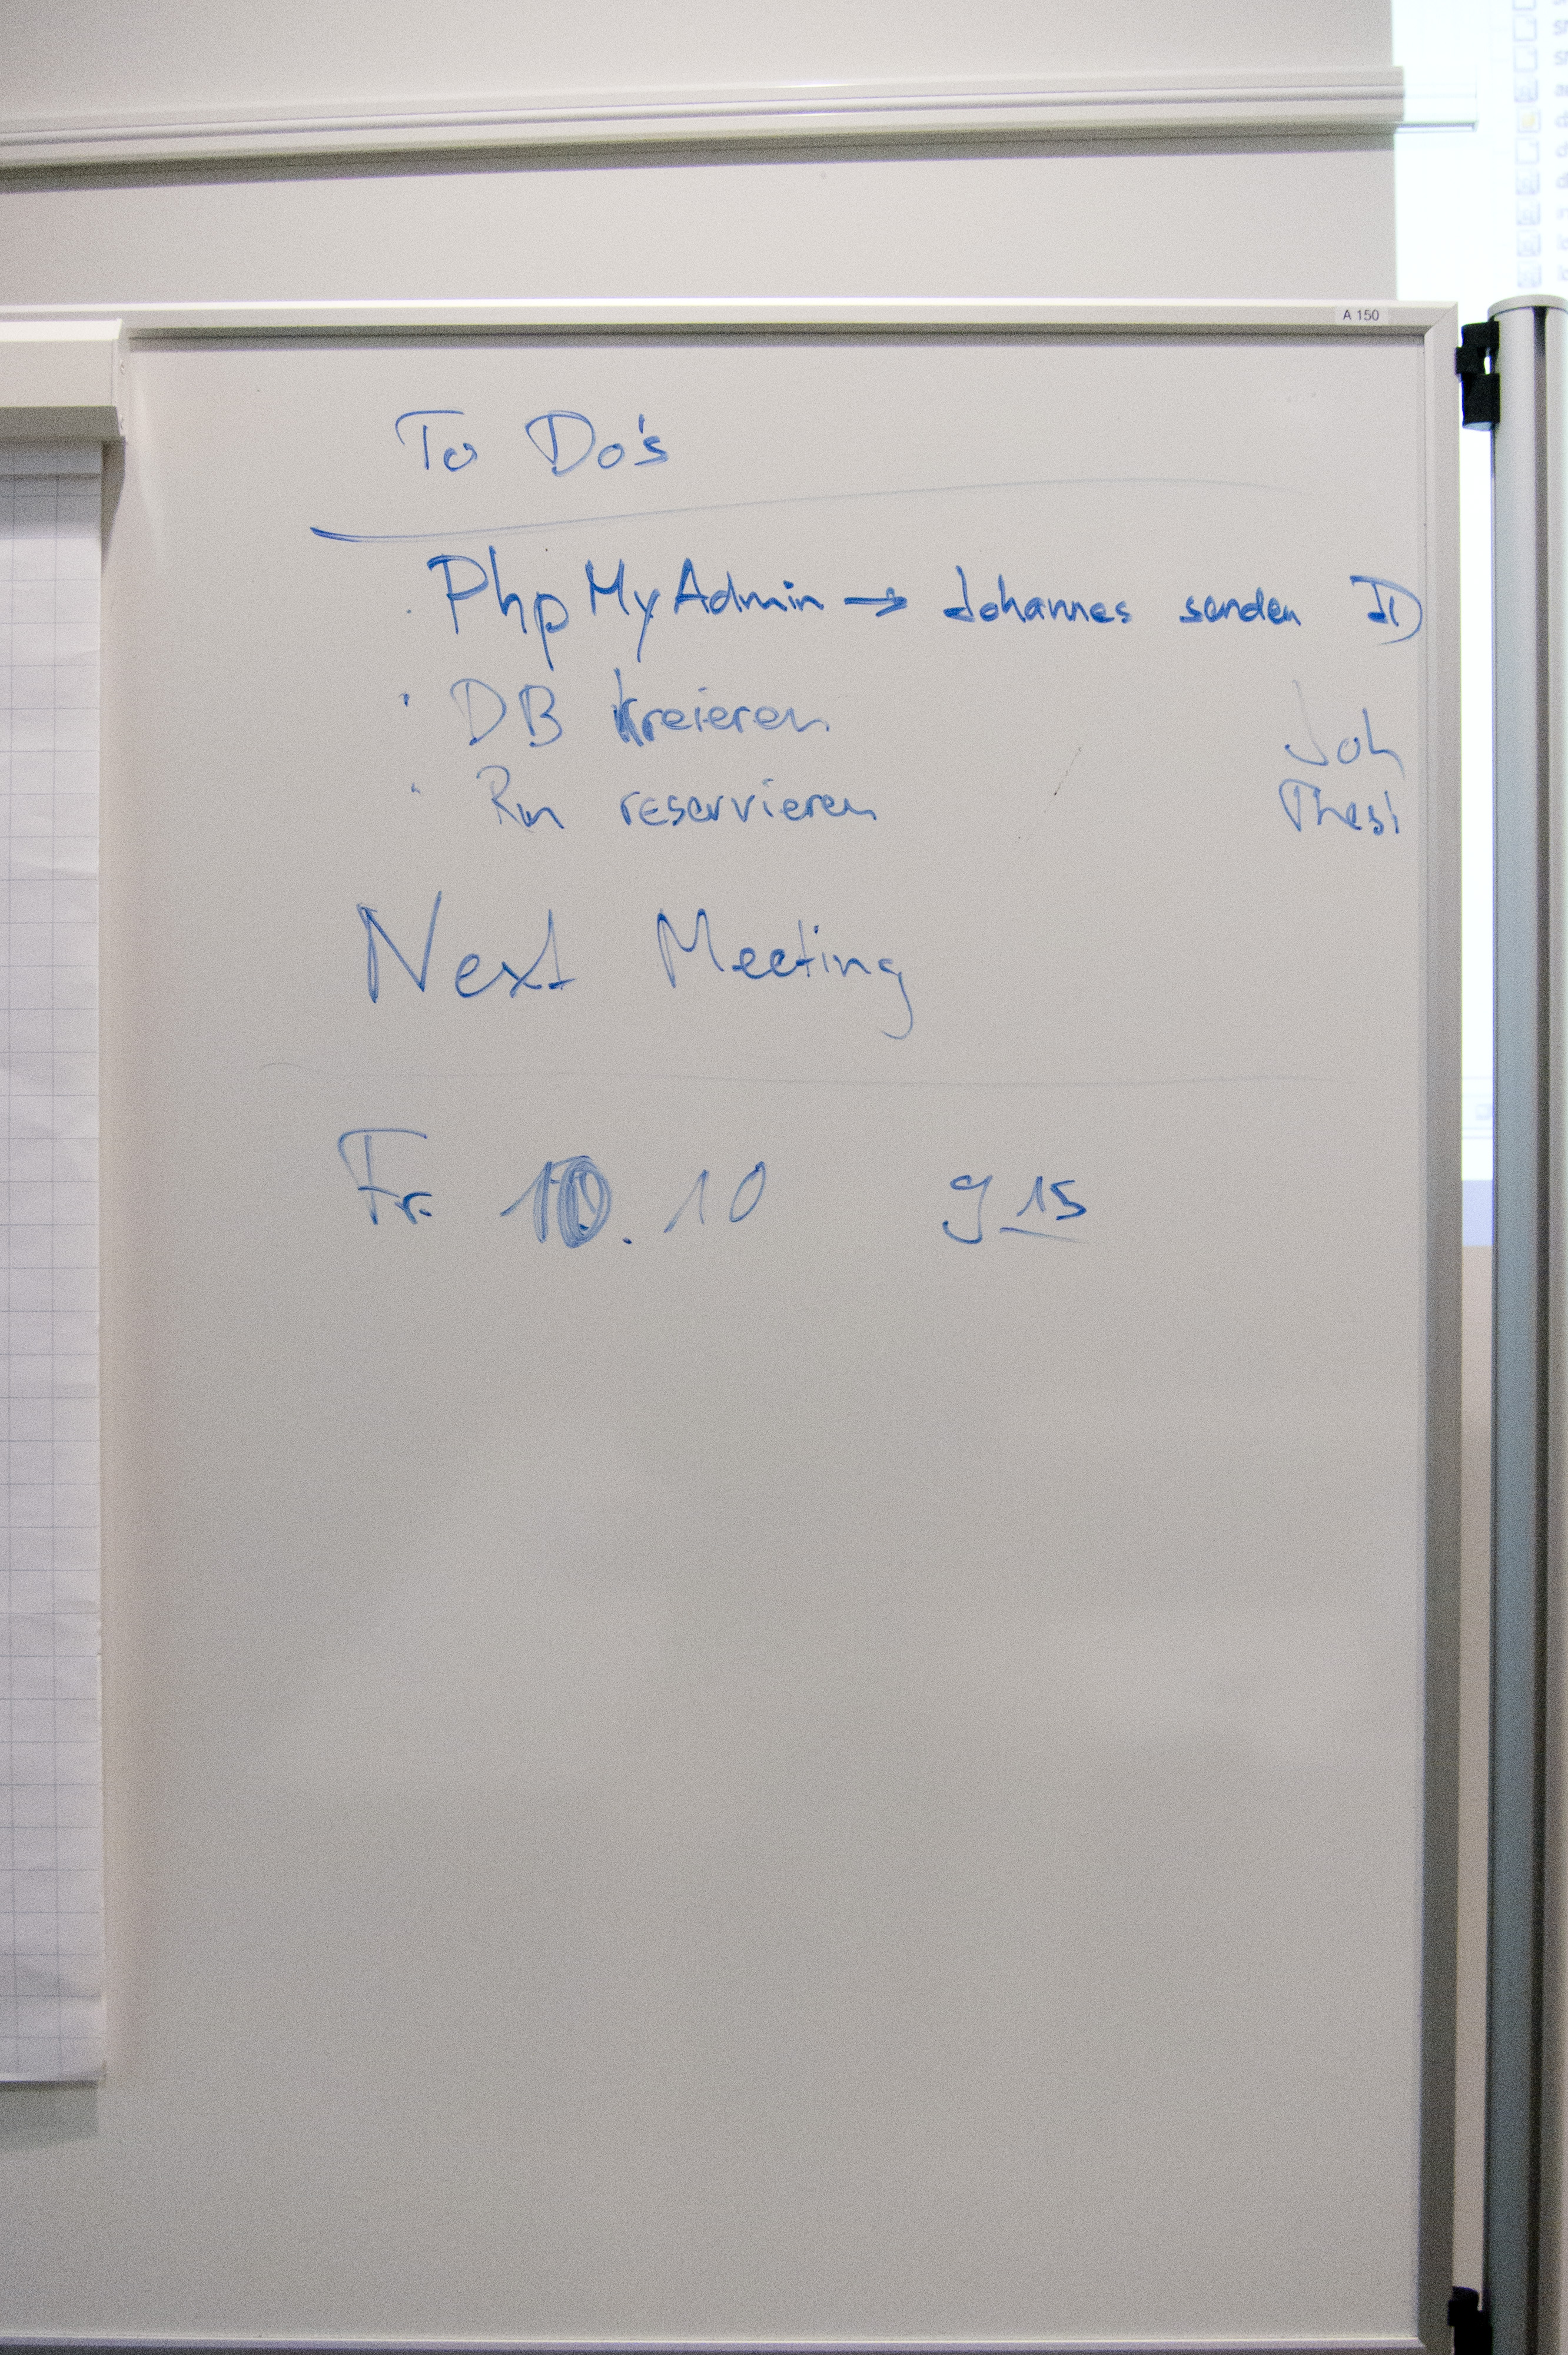 A 150
To Do's
· PhpMyAdmin → Johannes senden JD
· DB kreieren Joh
· Rm reservieren Thesi
Next Meeting
Fr 10.10 9 15